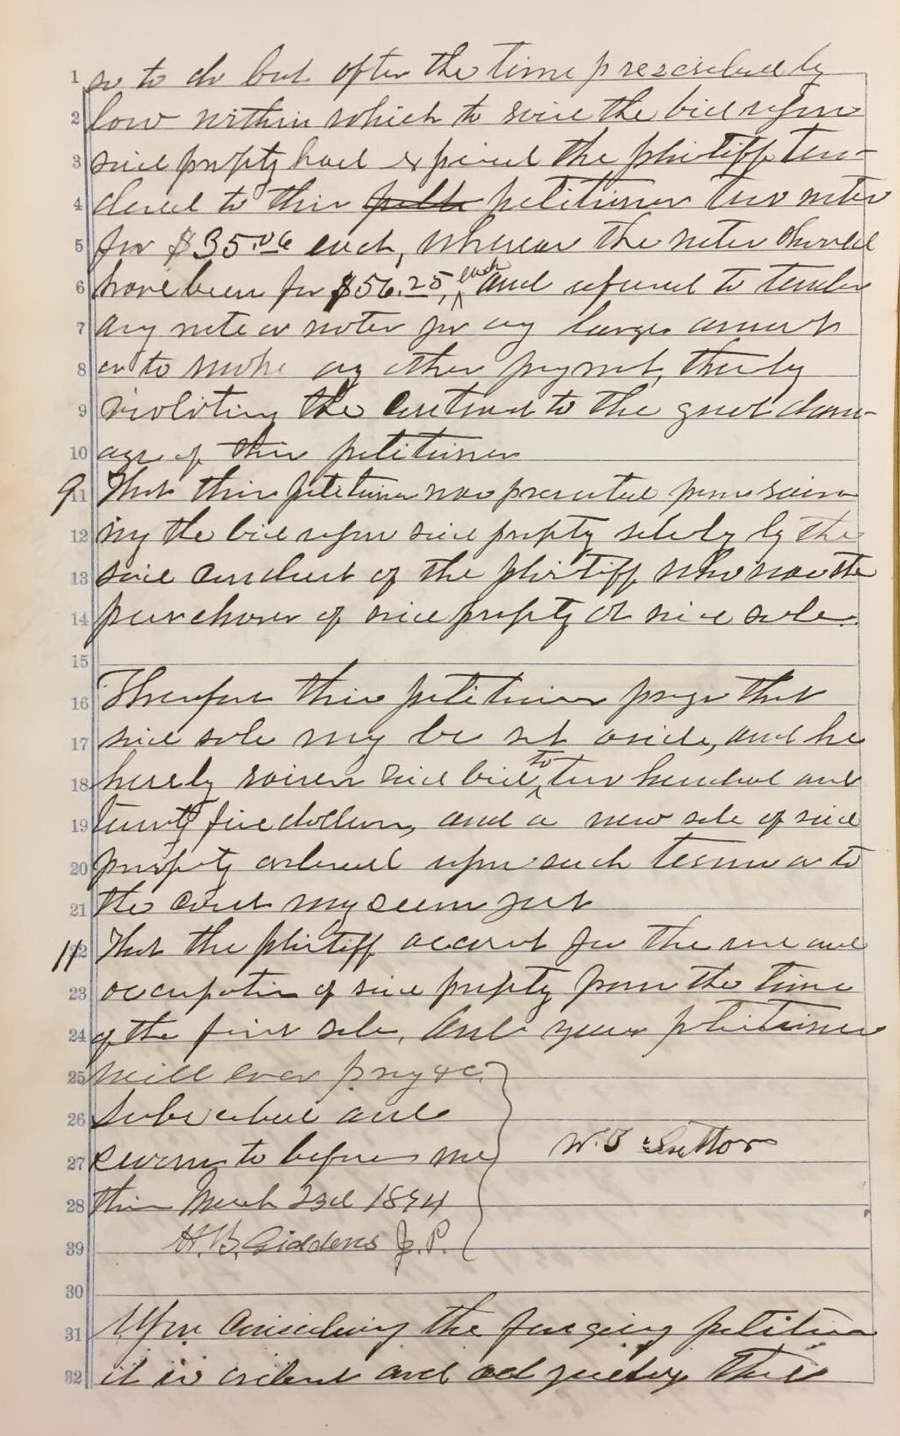 1 so to do but after the time prescribed by
2 law within which to raise the bid upon
3 said property had expired the plaintiff ten-
4 dered to this petitioner two notes
5 for $35.00 each, whereas the notes should
6 have been for $56.25, each and refused to tender
7 any note or notes for any larger amount
8 or to make any other payment, thereby
9 violating the contract to the great dam-
10 age of this petitioner
9 11 That this petitioner was prevented from rais-
12 ing the bid upon said property solely by the
13 said conduct of the plaintiff who was the
14 purchaser of said property at said sale.
15
16 Therefore this petitioner prays that
17 said sale may be set aside, and he
18 hereby raises said bid to two hundred and
19 twenty five dollars, and a new sale of said
20 property ordered upon such terms as to
21 the court may seem just
11 22 That the plaintiff account for the use and
23 occupation of said property from the time
24 of the first sale, And your petitioner
25 will ever pray &c.
26 Subscribed and
27 sworn to before me W.T. Sutton
28 this March 23d 1894
39 H.B. Giddens J.P.
30
31 Upon considering the foregoing petition
32 it is ordered and adjudged that